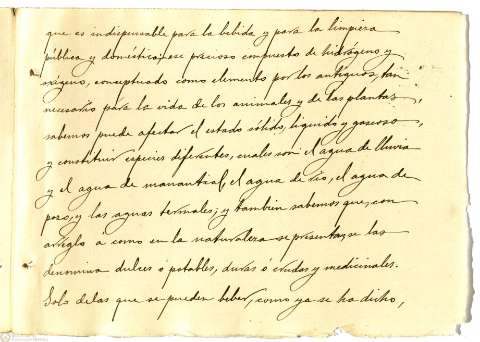 que es indispensable para la bebida y para la limpieza
pública y doméstica; ese precioso compuesto de hidrógeno y
oxígeno, conceptuado como elemento por los antiguos, tan
necesario para la vida de los animales y de las plantas,
sabemos puede afectar el estado sólido, líquido y gaseoso,
y constituir especies diferentes, cuales son el agua de lluvia
y el agua de manantial, el agua de río, el agua de
pozo, y las aguas termales; y tambien sabemos que, con
arreglo a como en la naturaleza se presenta, se las
denomina dulces ó potables, duras ó crudas y medicinales.
Solo de las que se pueden beber, como ya se ha dicho,